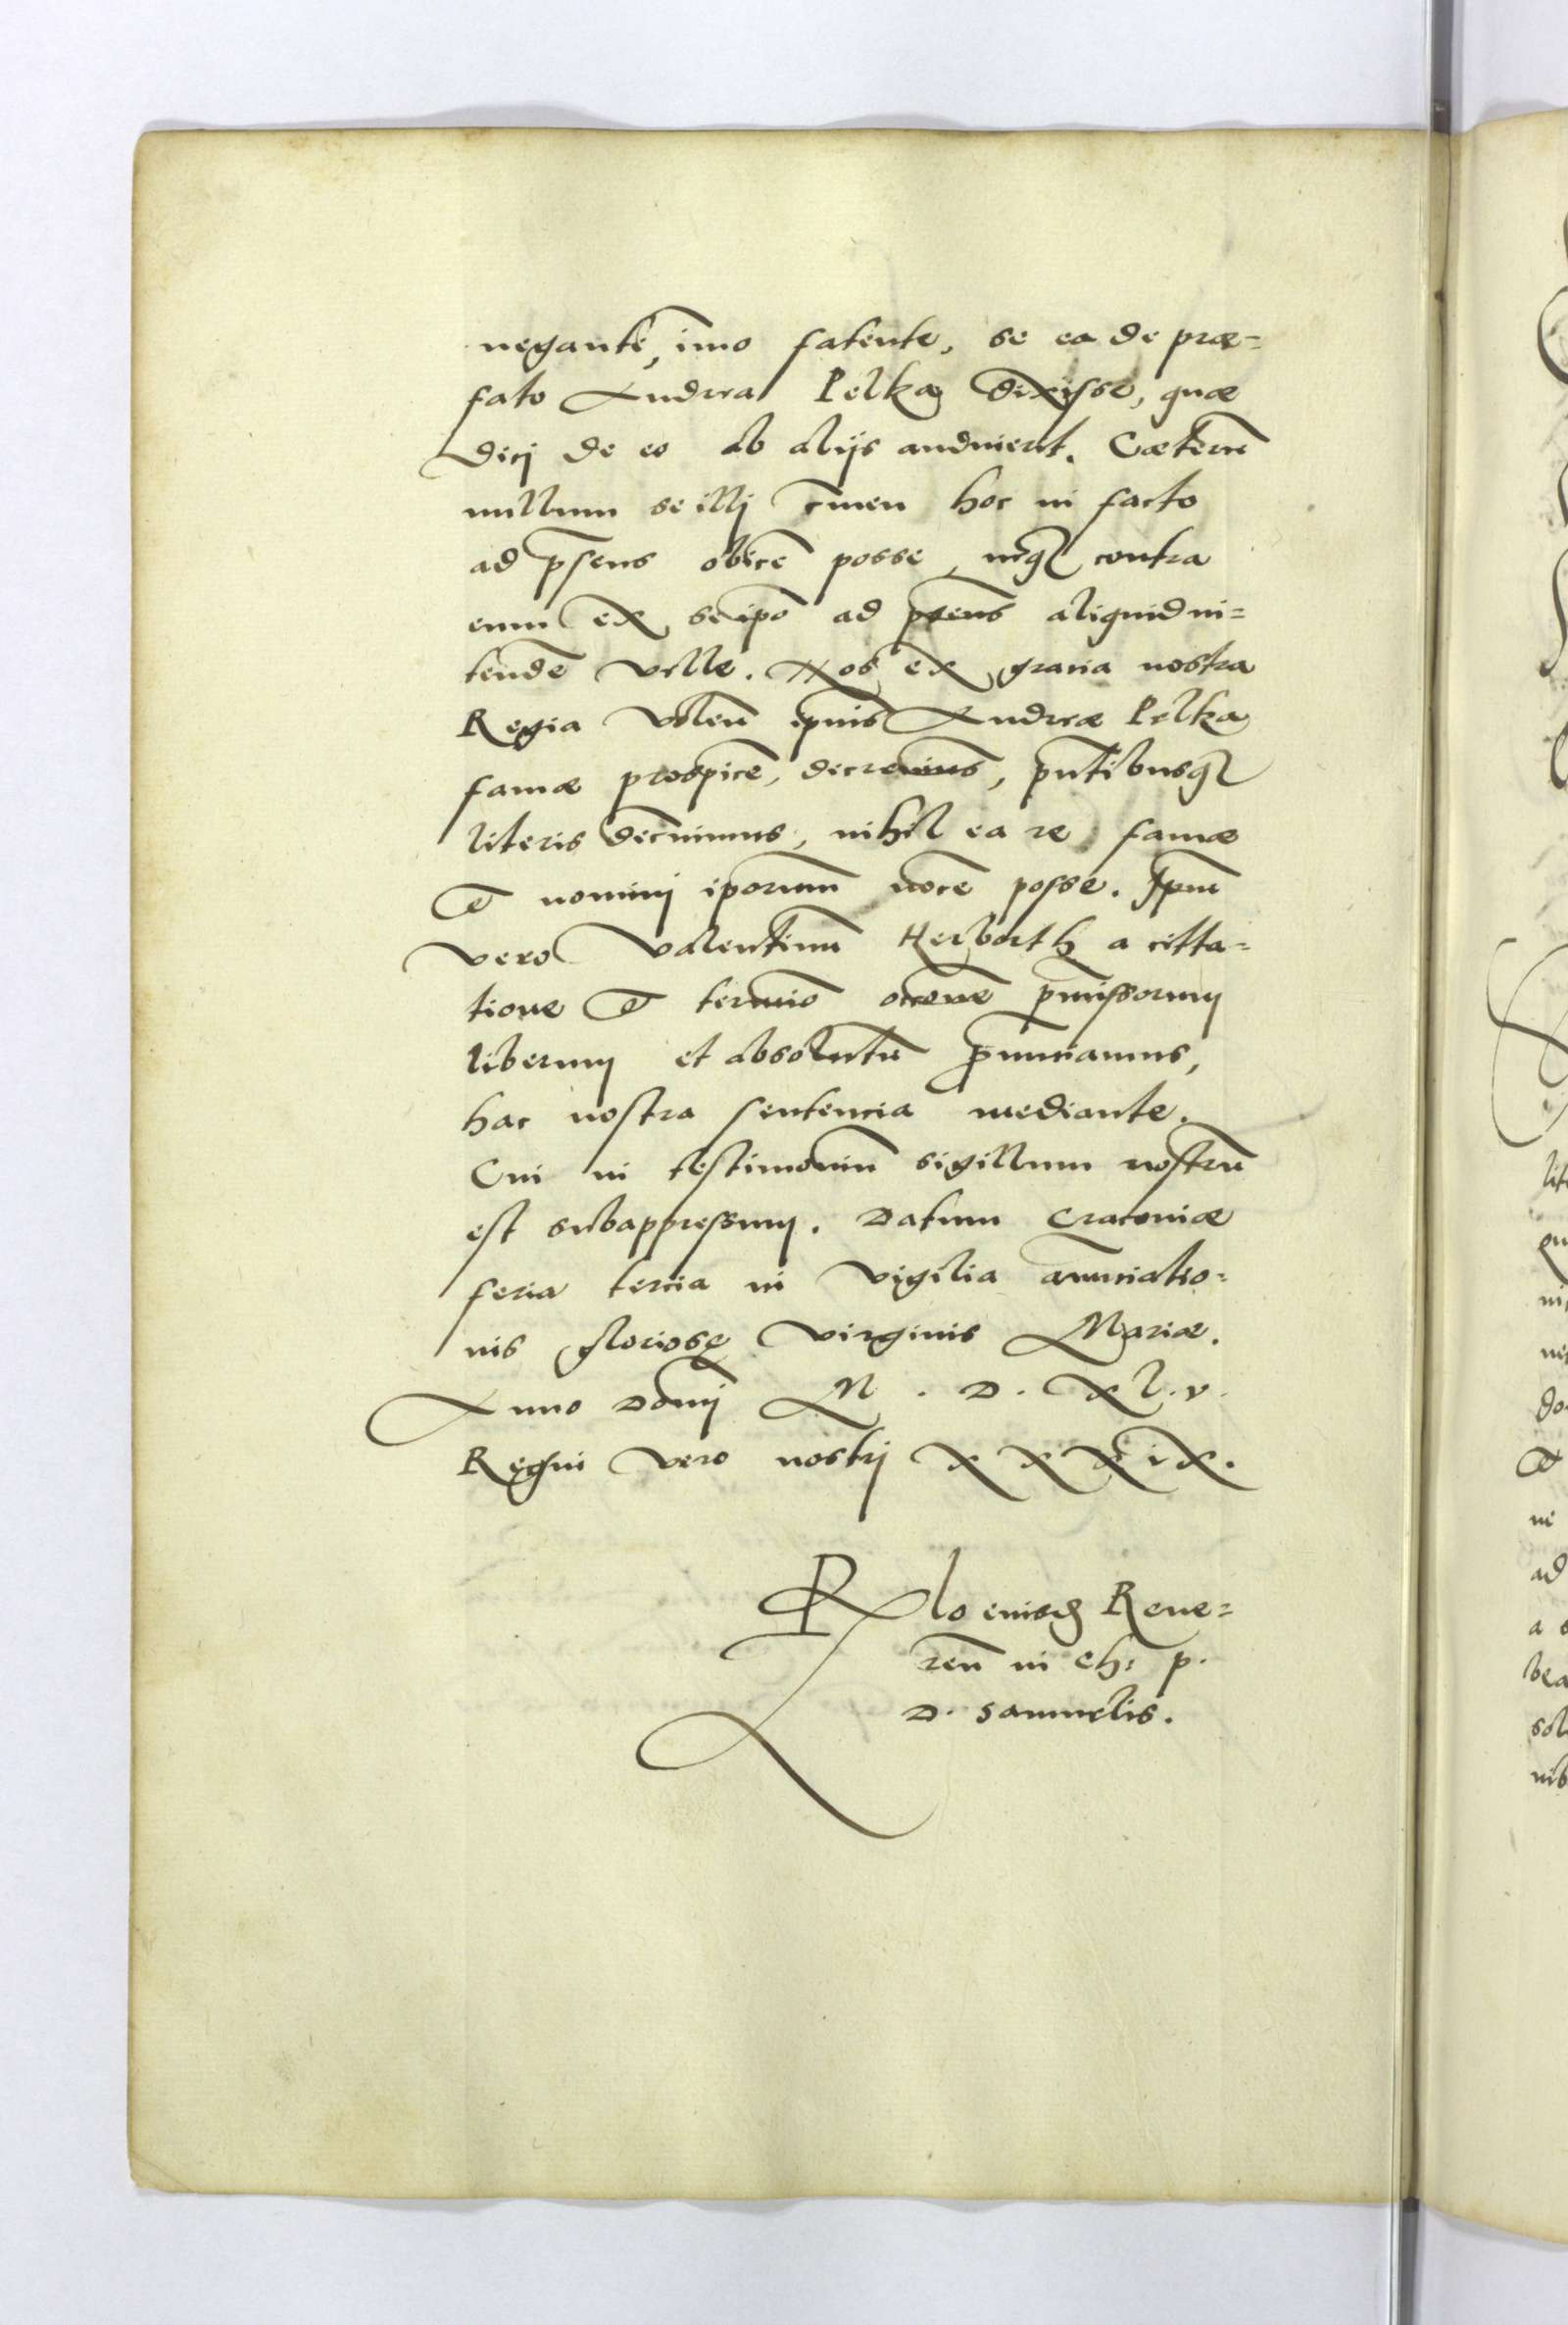 negante, imo fatente, se ea de præ=
fato Andrea Pelka dixisse, quæ
dicj de eo ab alijs audiuerat. Cæterũ
nullum se illj crimen hoc in facto
ad p̃sens obicẽ posse, neq3 contra
eum ex seipõ ad p̃sens aliquid in=
tendẽ velle. Nos ex gracia nostra
Regia volẽn ip̃ius Andreæ Pelka
famæ prospicẽ, decreuimus, pñtibusq3
literis decernimus, nihil ea re famæ
Et nominj ip̃orum nocẽ posse. Ip̃um
vero Valentinũ Herborth a citta=
tione Et termino occe͠ne p̃missorum
liberum et absolutũ p̃nunciamus,
hac nostra sentencia mediante.
Cui in testimoniũ sigillum nostrũ
est subappressum. Datum Cracouiæ
feria tercia in vigilia anũnciatio=
nis gloriosę virginis Mariæ.
Anno Domj M . D . XL . v .
Regni vero nostrj XXXIX.
Rlo eiusd Reue=
ren in Ch: p.
D. Samuelis.